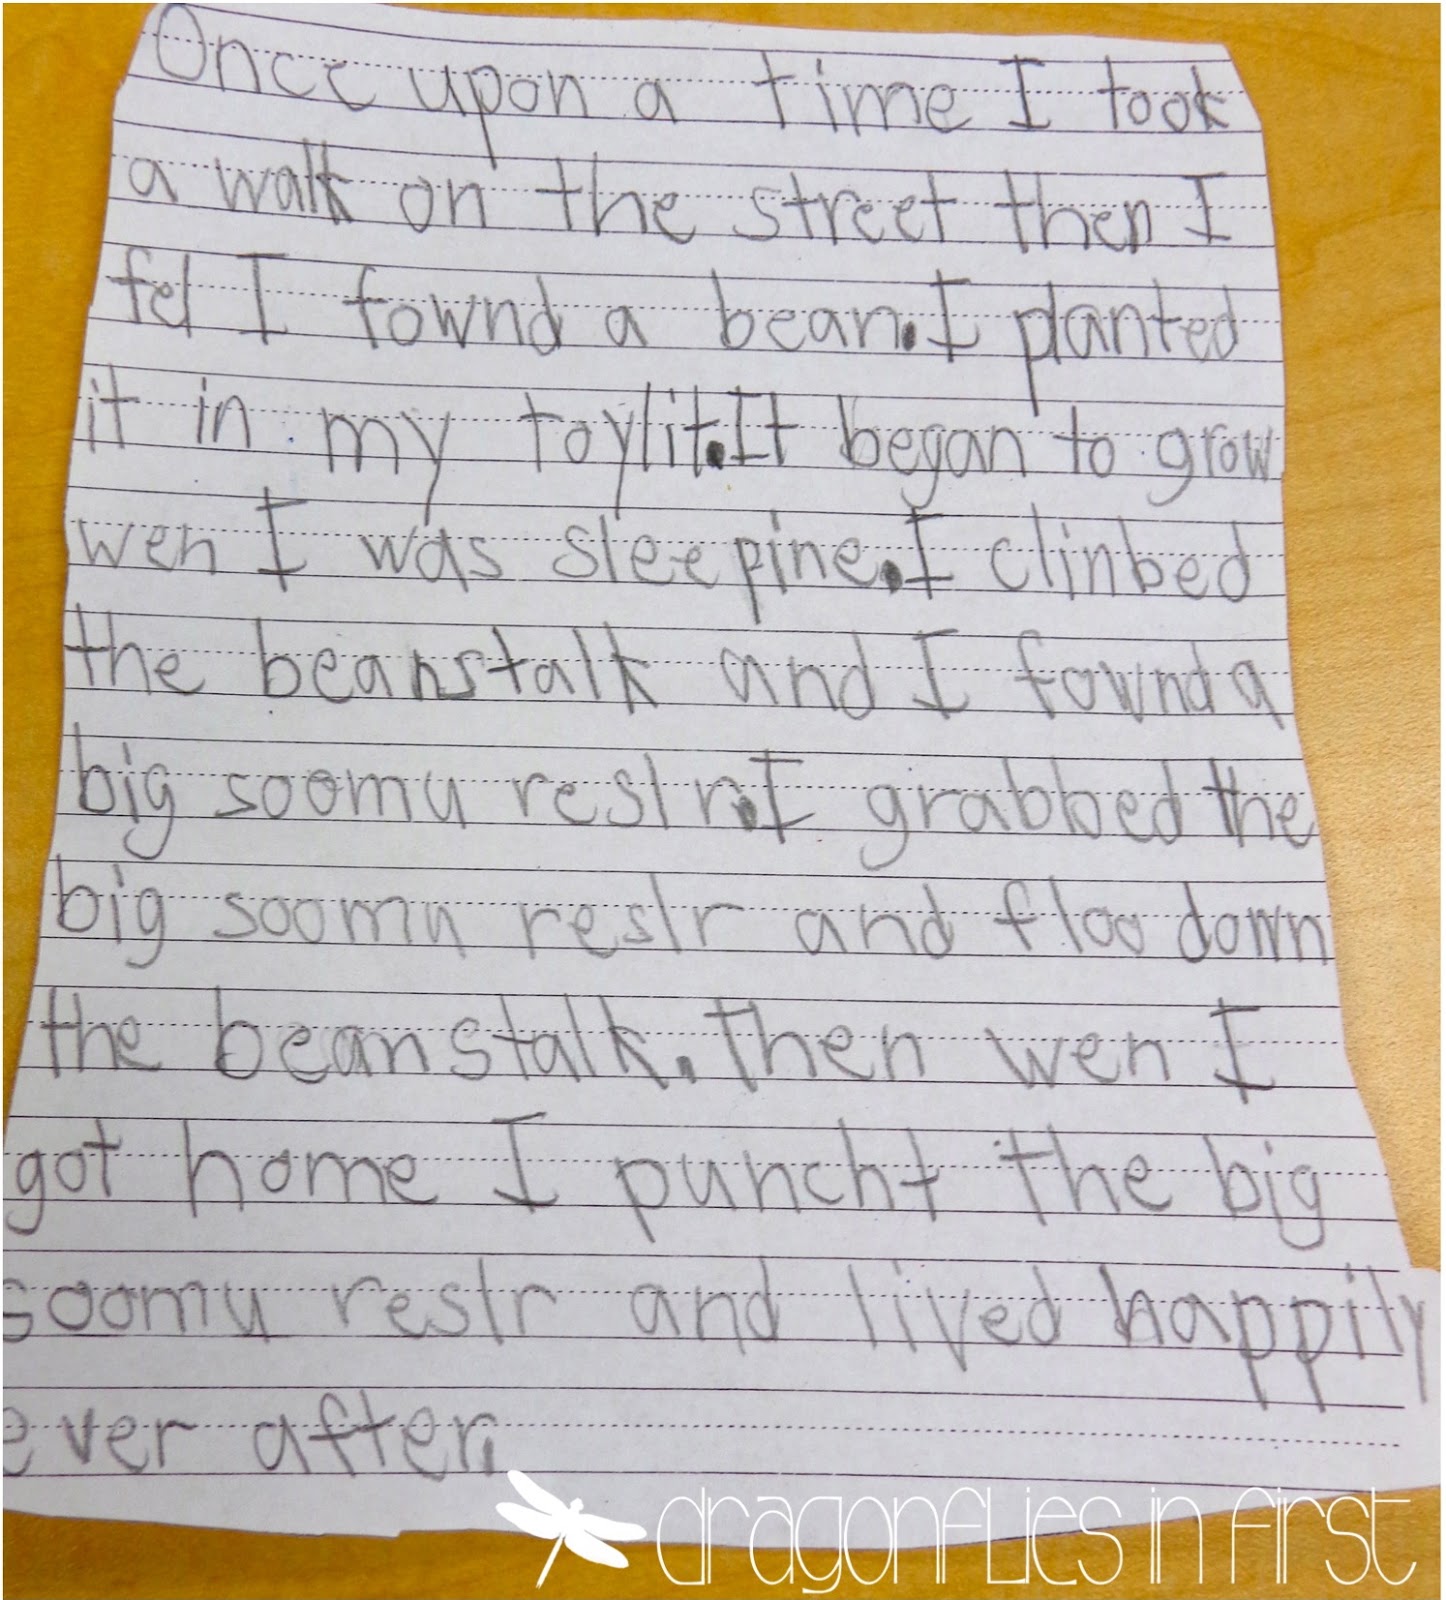 Once upon a time I took
a walk on the street then I
fel I fownd a bean.I planted
it in my toylit.It began to grow
wen I was sleepine.I clinbed
the beanstalk and I fownd a
big soomu reslr.I grabbed the
big soomu reslr and floo down
the beanstalk. Then wen I
got home I puncht the big
soomu reslr and lived happily
ever after.
DRAGONFLIES IN FIRST